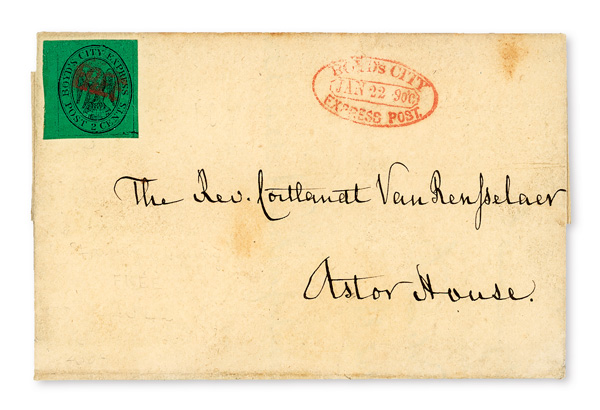 BOYD'S CITY EXPRESS
POST 2 CENTS
BOYD'S CITY
JAN 22
EXPRESS POST.
The Rev. Cortlandt Van Rensselaer
Astor House.